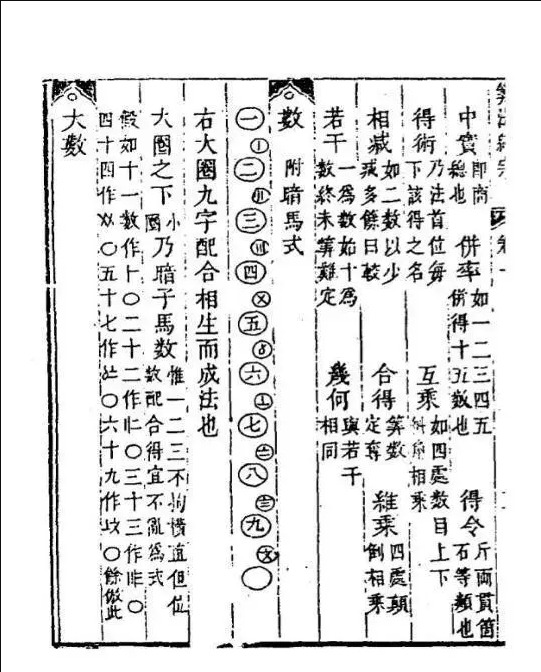 中實 即商總也 併率 如一二三四五併得十五數也 得令 斤兩貫箇石等類也
得術 乃法首位每下該得之名 互乘 如四處數目上下斜角相乘
相減 如二數以少減多餘曰較 合得 筭數定奪 維乘 四處顛倒相乘
若干 一為數始十為數終未筭難定 幾何 與若干相同
數 附暗馬式
一〡二〢三〣四〤五〥六〦七〧八〨九〩〇
右大圈九字配合相生而成法也
大圈之下小圈乃暗子馬數 惟一二三不拘橫直但位數配合得宜不亂為式
假如十一數作〸〇二十二作〇三十三作〇
四十四作〤〤〇五十七作〇六十九作〇餘倣此
大數